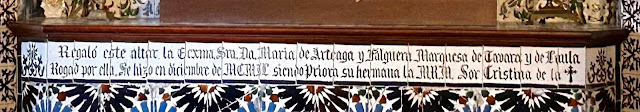 Regaló este altar la Ecxma, Sra, Da, Maria de Arteaga y Falguera Marquesa de Tavara y de Laula
Rogad por ella, Se hizo en diciembre de MCMIL siendo Priora su hermana la MRM, Sor Cristina de la ✝